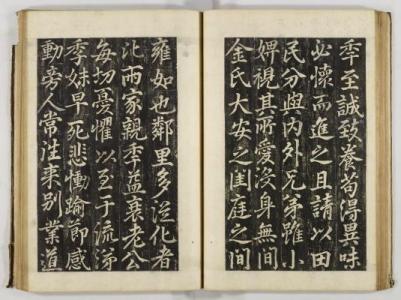 秊至誠致養苟得異味
必懷而進之且請以田
民分與内外兄弟雖小
婢視其所愛没身無間
金氏大安之閨庭之間
雍如也鄰里多從化者
比兩家親秊益衰老公
每切憂懼以至于流涕
季妹早死悲慟踰節感
動旁人常往來別業道